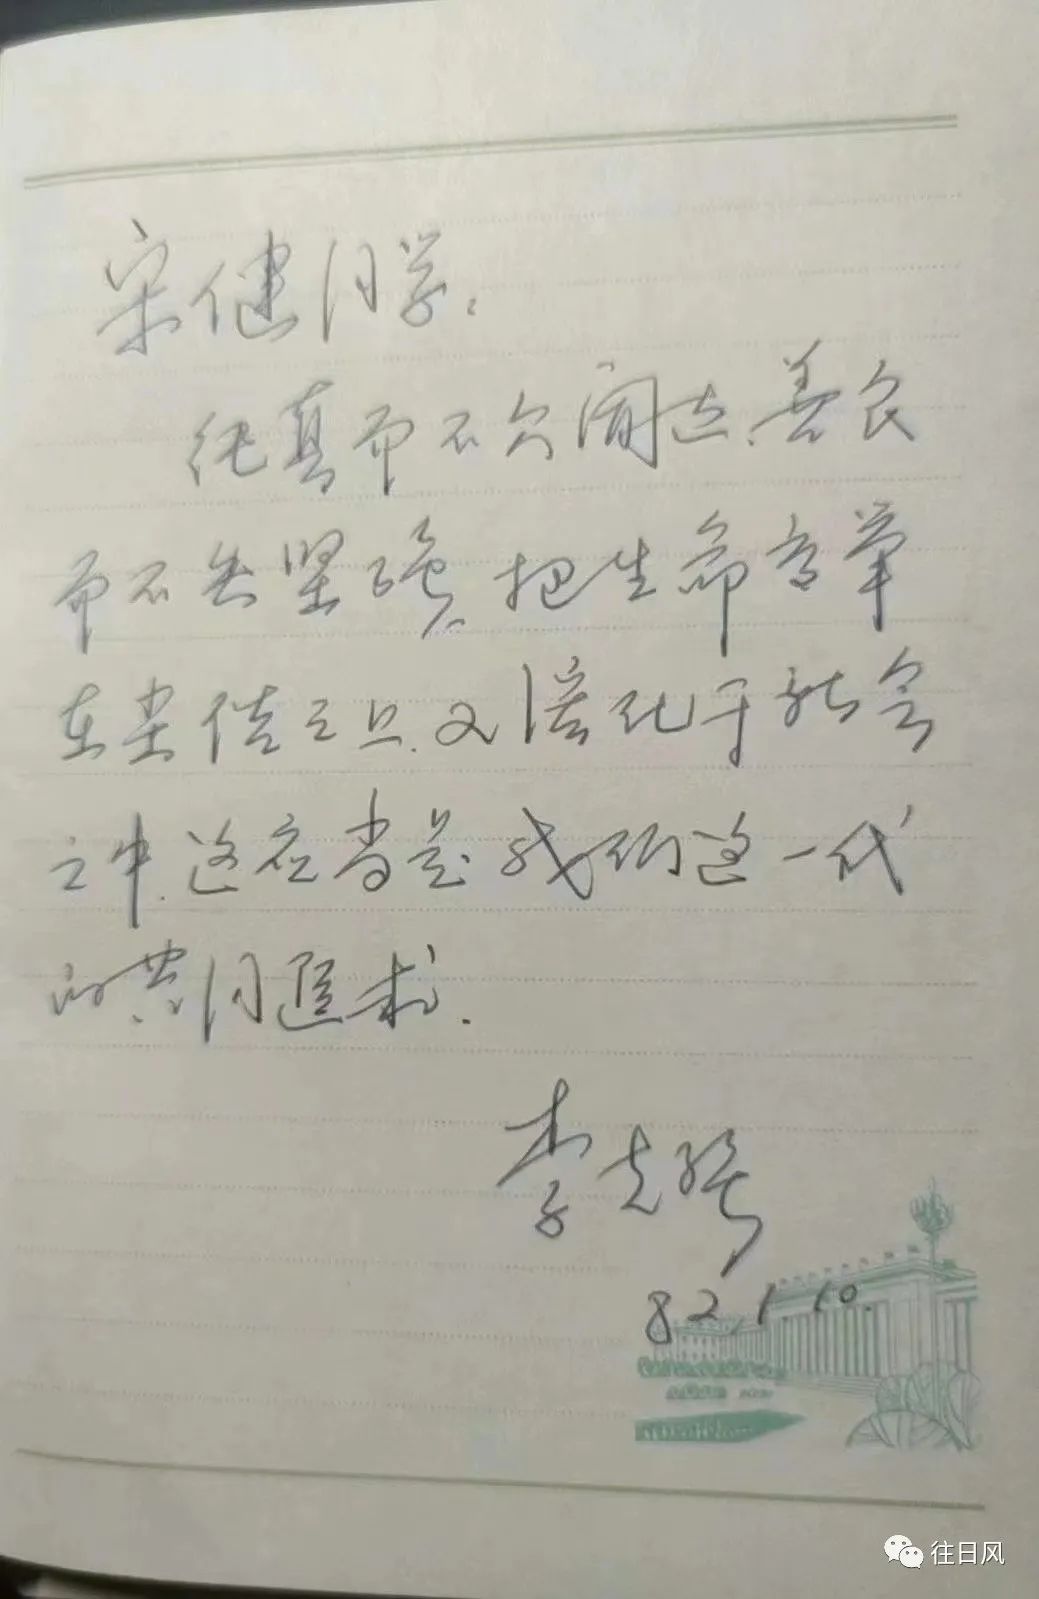 宋健同学：
纯真而不欠阔达，善良
而不失坚强，把生命高举
在尘俗之上，又溶化于社会
之中，这应当是我们这一代
的共同追求．
李克强
82．1．10．
往日风